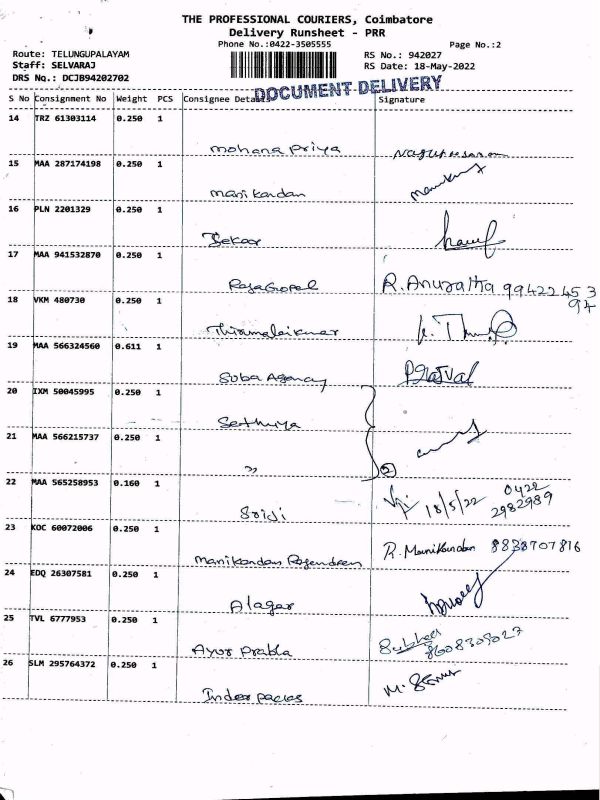 THE PROFESSIONAL COURIERS, Coimbatore
Delivery Runsheet - PRR
Phone No.:0422-3505555
Page No.:2
Route: TELUNGUPALAYAM
RS No.: 942027
Staff: SELVARAJ
RS Date: 18-May-2022
DRS No.: DCJB94202702
DOCUMENT DELIVERY
S No Consignment No Weight PCS Consignee Details Signature
14 TRZ 61303114 0.250 1
mohana priya
15 MAA 287174198 0.250 1
manikandan
16 PLN 2201329 0.250 1
Sekaar
17 MAA 941532870 0.250 1
RajaGopal R. Anuratha 99422 453
94
18 VKM 480730 0.250 1
Thirumalaikumar
19 MAA 566324560 0.611 1
Suba Agency
20 IXM 50045995 0.250 1
Sathiya
21 MAA 566215737 0.250 1
" 2
22 MAA 565258953 0.160 1
Sriji 18/5/22 0422
2982989
23 KOC 60072006 0.250 1
manikandan Rajendran R. Manikandan 8838707816
24 EDQ 26307581 0.250 1
Alagar
25 TVL 6777953 0.250 1
Ayur Prabha
8608309027
26 SLM 295764372 0.250 1
Index paces